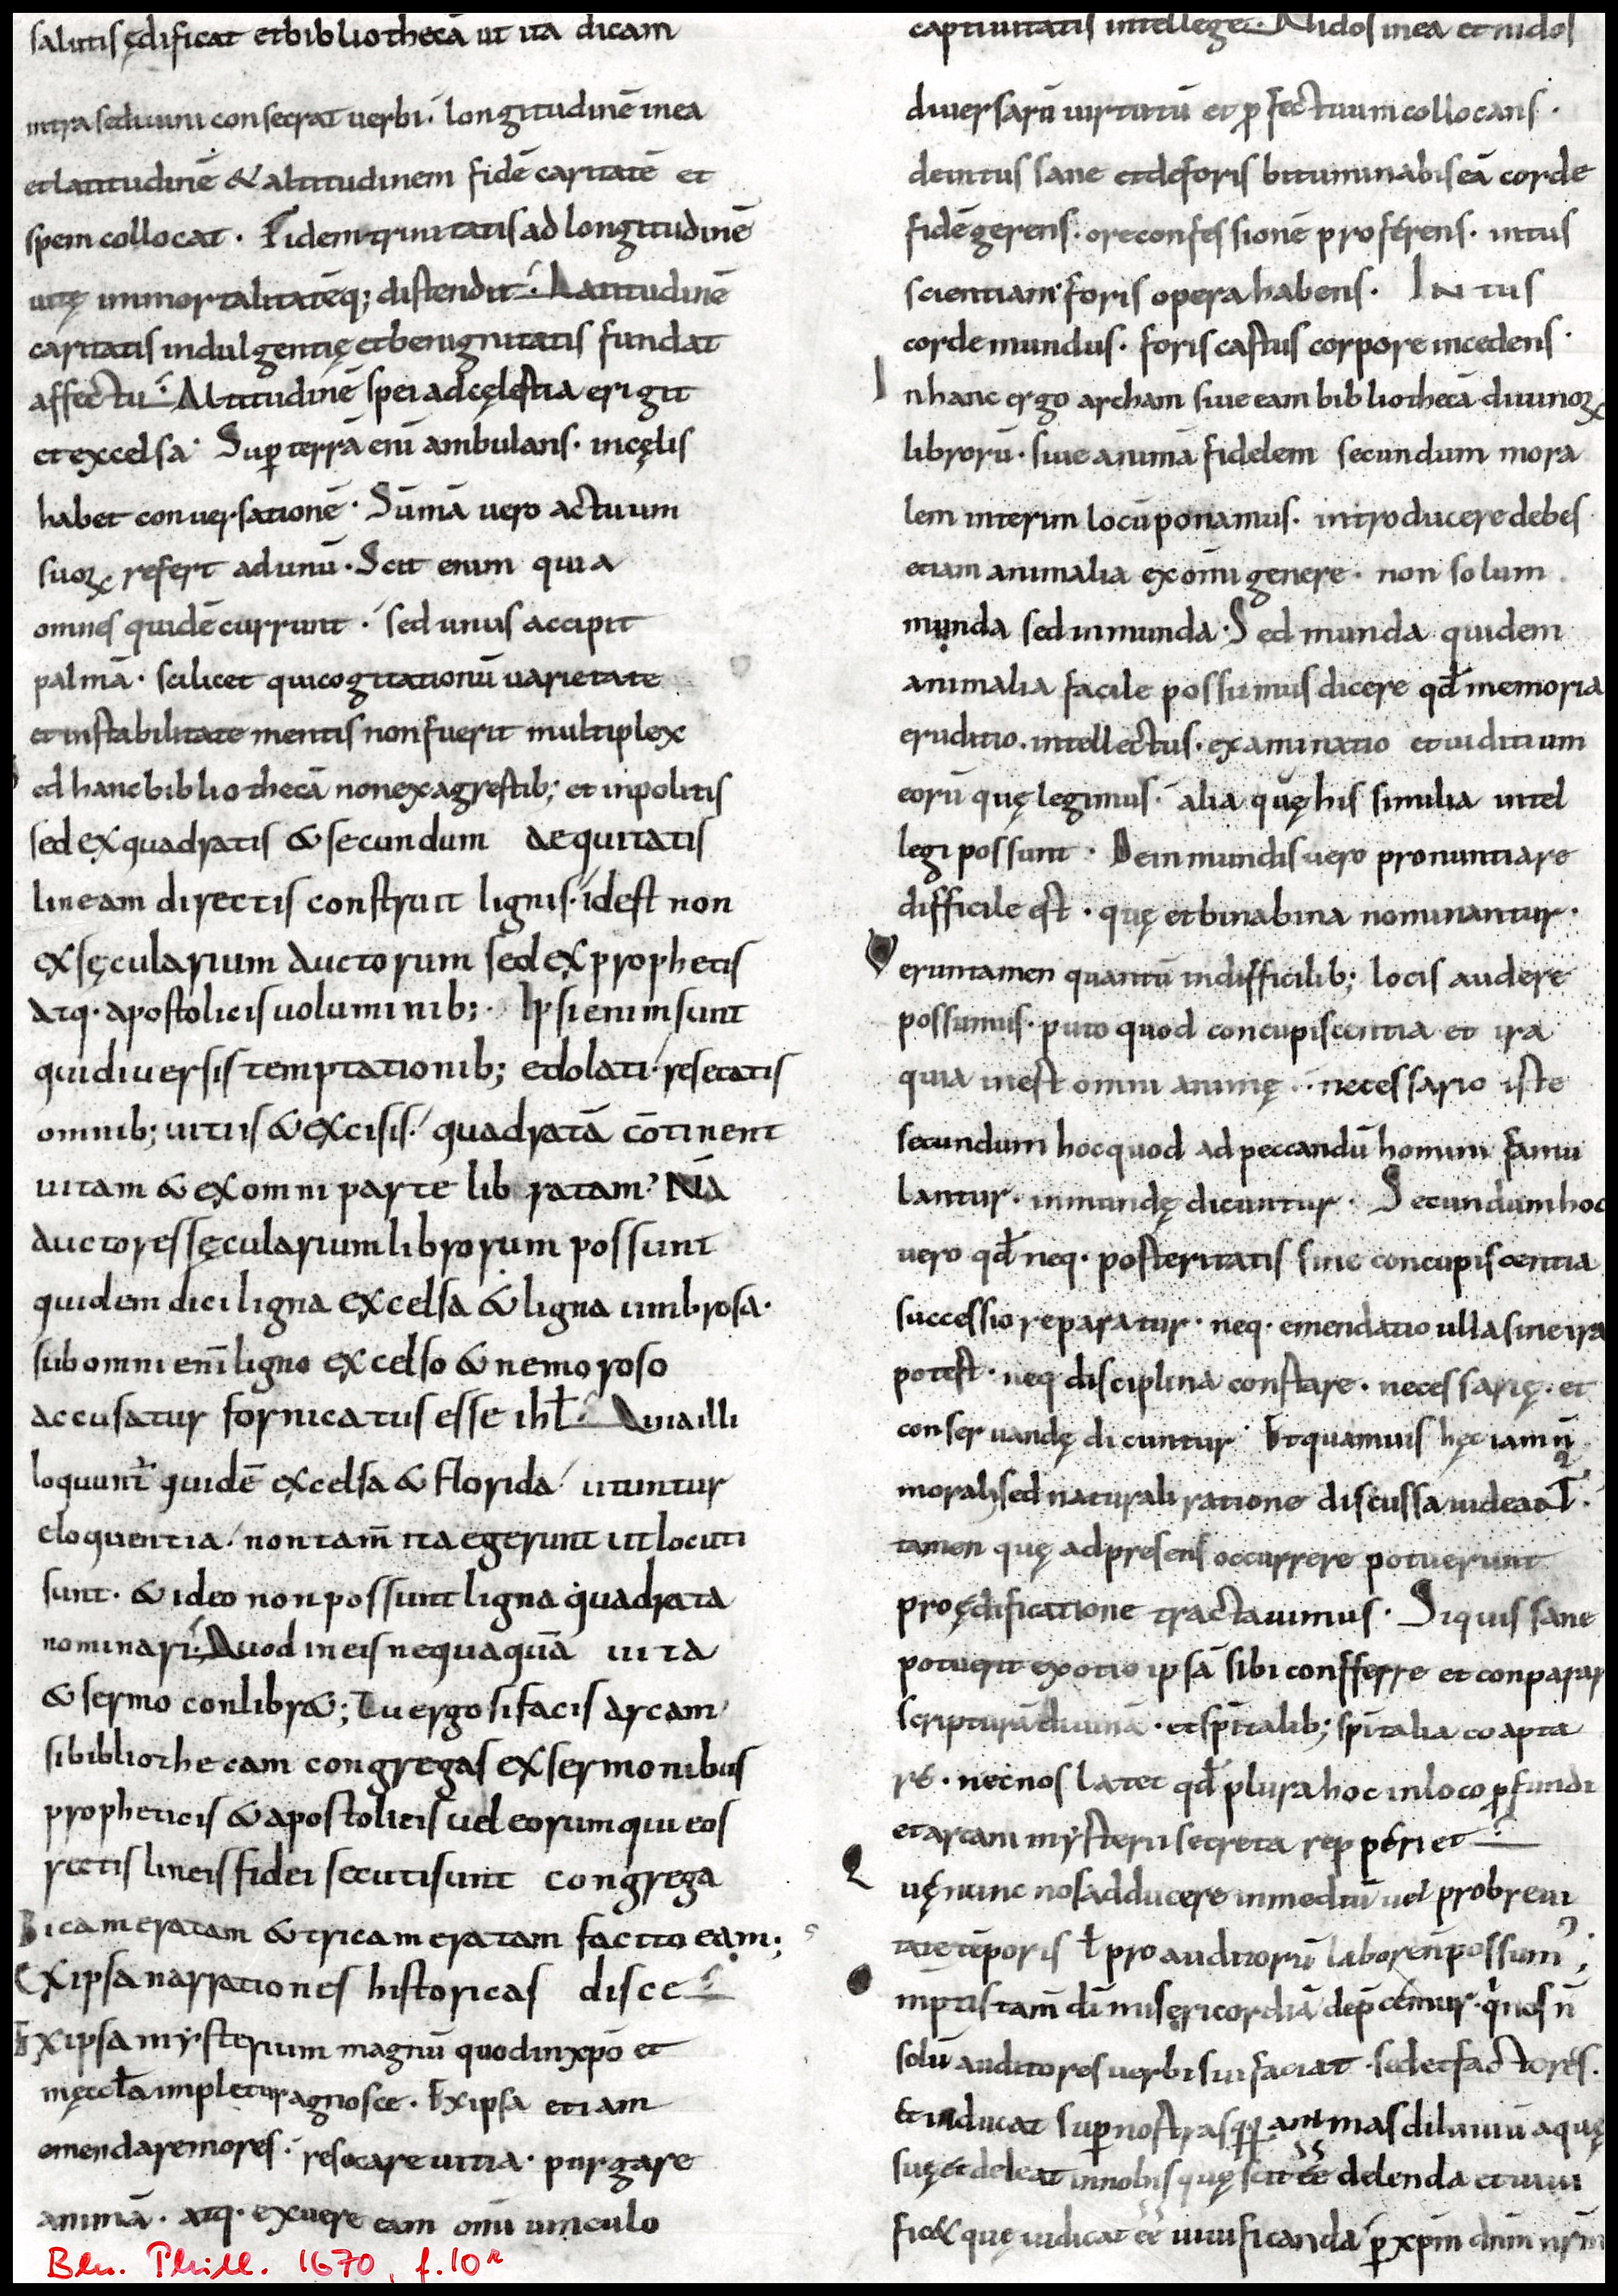 salutis ędificat et bibliothecā ut ita dicam
intra se divini consecrat verbi. longitudinē in ea
et latitudinē & altitudinem fidē caritatē et
spem collocat. Fidem trinitatis ad longitudinē
uitę inmortalitatēq; distendit. Latitudinē
caritatis indulgentię et benignitatis fundat
affectu. Altitudinē spei ad cęlestia erigit
et excelsa. Sup terrā eni ambulans. in cęlis
habet conuersationē. Sūmā uero actuum
suoꝝ refert ad unū. Scit enim quia
omnes quidē currunt. sed unus accipit
palmā. scilicet qui cogitationū uarietate
et instabilitate mentis non fuerit multiplex
ed hanc bibliothecā non ex agrestib; et inpolitis
sed ex quadratis & secundum aequitatis
lineam directis construit lignis. id est non
ex sęcularium auctorum sed ex prophetis
atq. apostolicis uoluminib;. Ipsi enim sunt
qui diuersis temptationib; edolati. resecatis
omnib; uitiis & excisis. quadratā cōtinent
uitam & ex omni parte libratam. Nā
auctores sęcularium librorum possunt
quidem dici ligna excelsa & ligna umbrosa.
sub omni enī ligno excelso & nemoroso
accusatur fornicatus esse ihł. Quia illi
loquunt̃ quidē excelsa & florida. utuntur
eloquentia. non tam̄ ita egerunt ut locuti
sunt. & ideo non possunt ligna quadrata
nominari. Quod in eis nequaquā uita
& sermo conlibr&; Tu ergo si facis arcam
si bibliothecam congregas ex sermonibus
propheticis & apostolicis uel eorum qui eos
rectis lineis fidei secuti sunt congrega
Bicameratam & tricameratam facito eam;
Ex ipsa narrationes historicas disce
Ex ipsa mysterium magnū quod in xp̄o et
in ęccła impletur agnosce. Ex ipsa etiam
emendare mores. resecare uitia. purgare
animā. atq. exuere eam omī uinculo
Bln. Phill. 1670, f. 10r
captiuitatis intellege. Nidos in ea et nidos
diuersarū uirtutū et ꝓfectuum collocans.
deintus sane et deforis bituminabis eā corde
fidē gerens. ore confessionē proferens. intus
scientiam foris opera habens. Intus
corde mundus. foris castus corpore incedens.
In hanc ergo archam siue eam bibliothecā diuinoꝝ
librorū. siue animā fidelem secundum mora
lem interim locū ponamus. introducere debes
etiam animalia ex om̄i genere. non solum
munda sed inmunda. Sed munda quidem
animalia facile possumus dicere qđ memoria
eruditio. intellectus. examinatio et iuditium
eorū quę legimus. alia quę his similia intel
legi possunt. De inmundis uero pronuntiare
difficile est. quę et bina bina nominantur.
Ueruntamen quantū in difficilib; locis audere
possumus. puto quod concupiscentia et ira
quia inest omni animę. necessario iste
secundum hoc quod ad peccandū homini famu
lantur. inmundę dicuntur. Secundum hoc
uero qđ neq. posteritatis sine concupiscentia
successio reparatur. neq. emendatio ulla sine ira
potest. neq disciplina constare. necessarię. et
conseruandę dicuntur. Et quamuis hęc iam n̄
morali sed naturali ratione discussa uideant̃.
tamen quę ad presens occurrere potuerunt
pro ędificatione tractauimus. Si quis sane
potuerit ex otio ipsā sibi confferre et conparar
scripturā diuinā. et spītalib; spītalia coapta
re. nec nos latet qđ plura hoc in loco ꝓfundi
et arcani mysterii secreta repperiet
Quę nunc nos adducere in mediū uel pro breui
tate tēporis ł pro auditorū labore n̄ possum';
inptis tam̄ dī misericordiā depcemur. q̇ nos n̄
solū auditores uerbi sui faciat. sed et factores.
Et inducat sup nostras qq animas diluuiū aquę
suę et deleat in nobis quę scit ēē delenda et uiui
fic& quę iudicat ēē uiuificanda ꝑ xp̄m dn̄m nr̄m